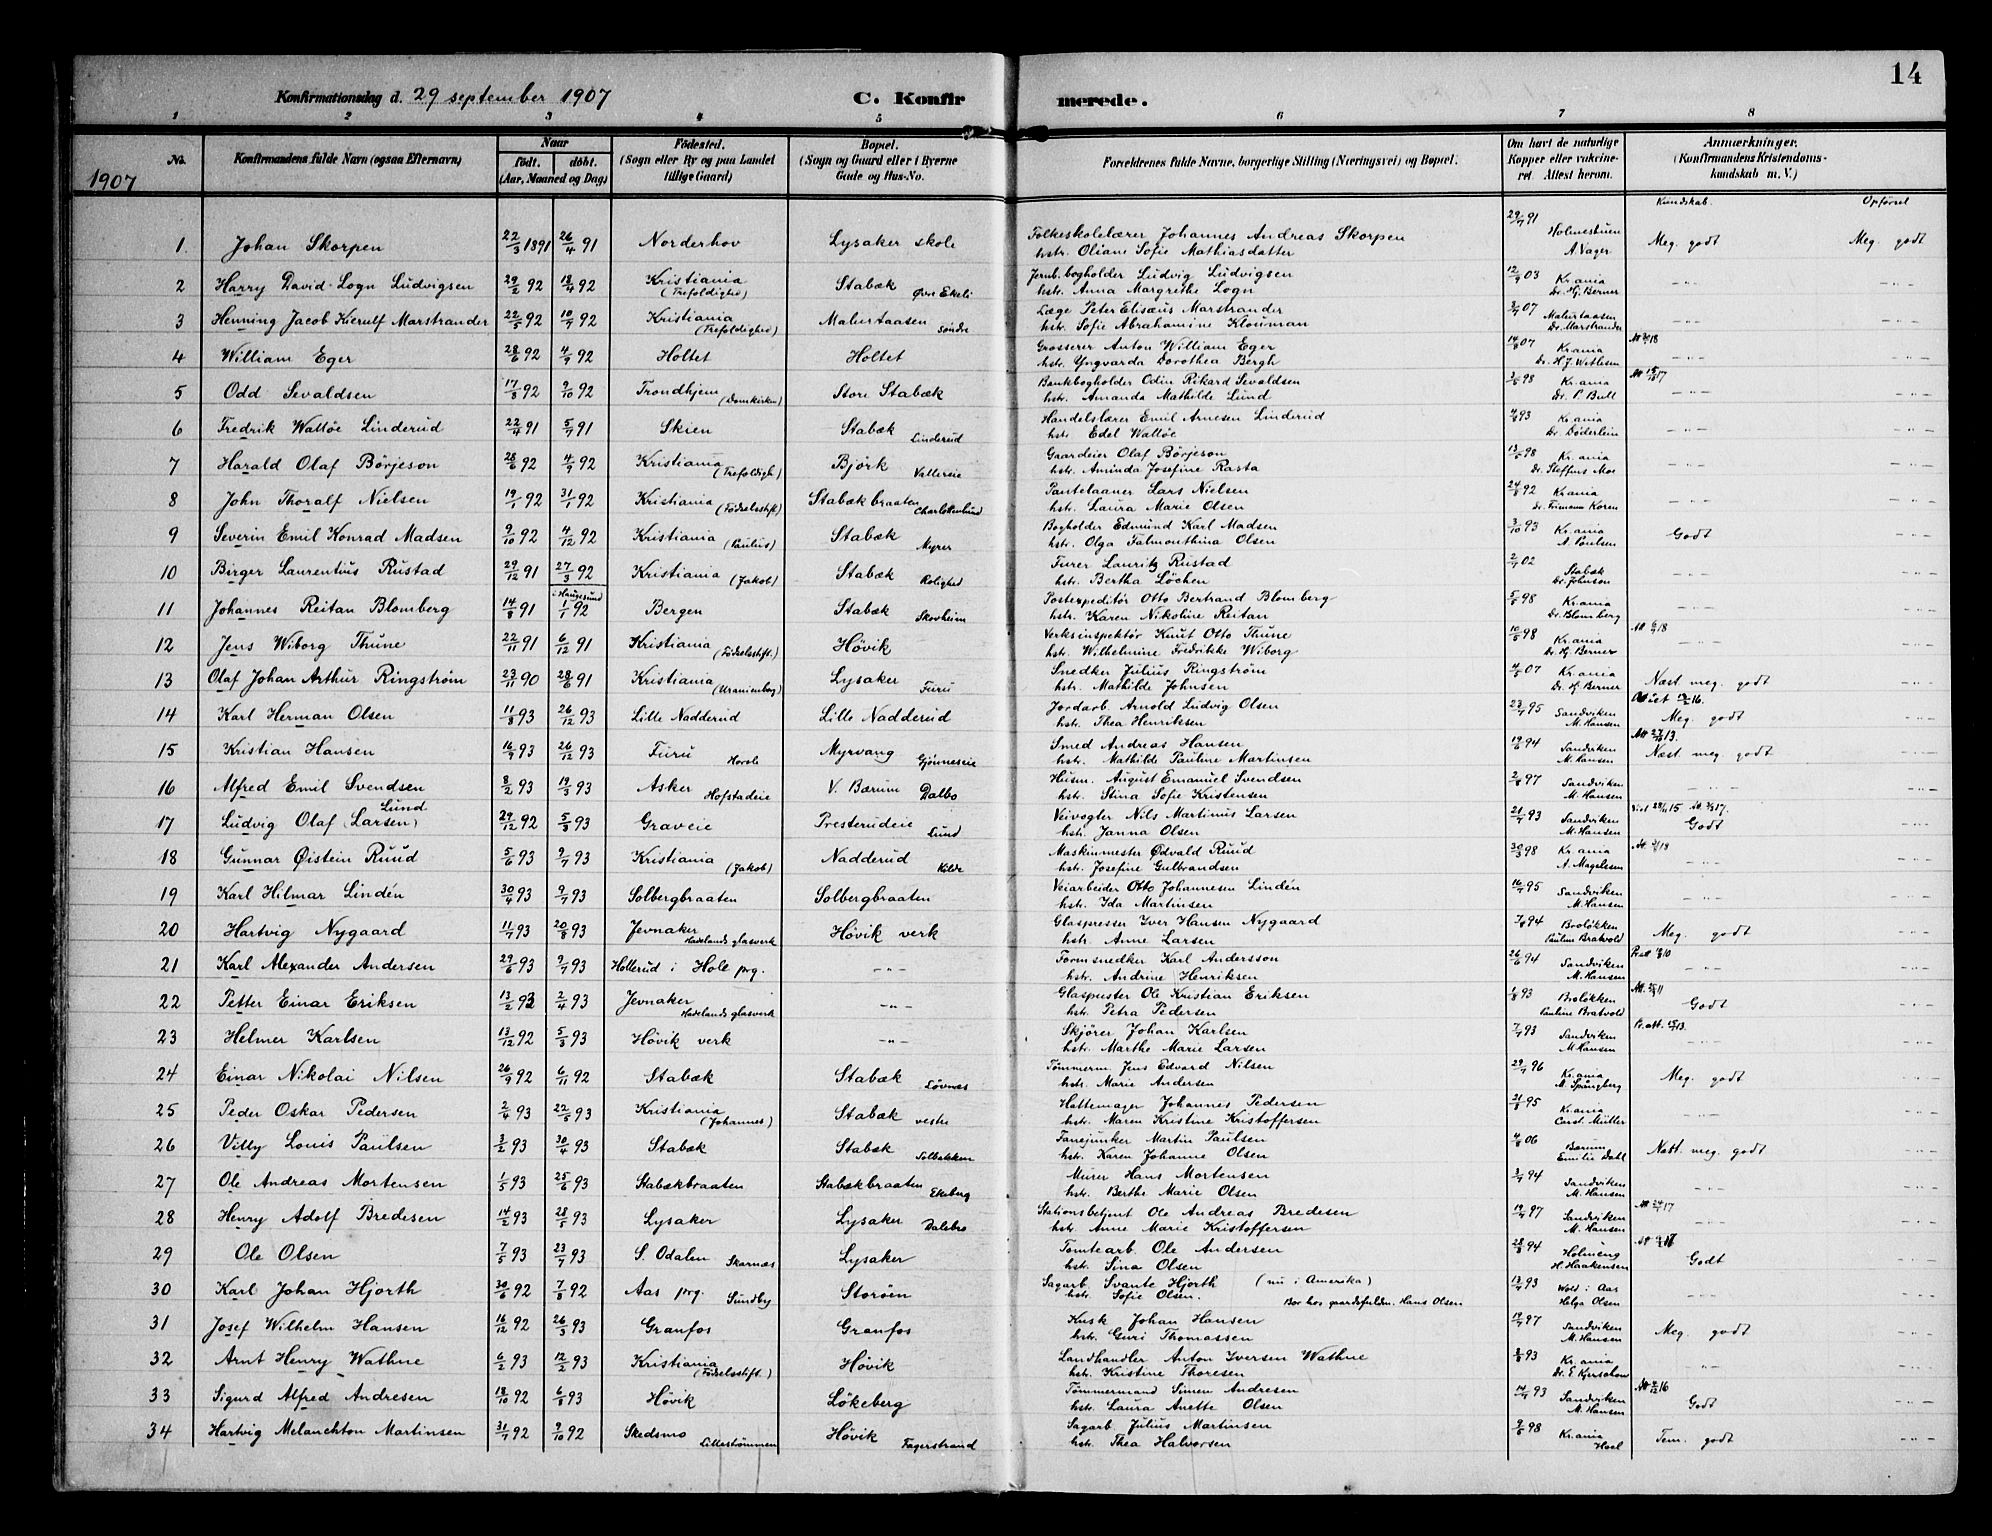 14
Konfirmationsdag d. 29 september 1907
C. Konfirmerede.
1 2 3 4 5 6 7 8
No. Konfirmandens fulde Navn (ogsaa Efternavn) Naar født. døbt. (Aar, Maaned og Dag) Fødested. (Sogn eller By og paa Landet tillige Gaard) Bopæl. (Sogn og Gaard eller i Byerne Gade og Hus-No. Forældrenes fulde Navne, borgerlige Stilling (Næringsvei) og Bopæl. Om havt de naturlige Kopper eller vakcineret. Attest herom. Anmærkninger. (Konfirmandens Kristendomskundskab m. V.)
1907
Kundskab. Opførsel
1. Johan Skorpen 22/3 1891 26/4 91 Norderhov Lysaker skole Folkeskolelærer Johannes Andreas Skorpen hstr. Oliane Sofie Mathiasdatter 29/7 91 Holmestuen A. Vager Meg. godt Meg. godt
2 Harry David Logn Ludvigsen 29/2 92 18/4 92 Kristiania (Trefoldighed) Stabæk Øvre Ekeli Jernb. bogholder Ludvig Ludvigsen hstr. Anna Margrethe Logn 12/9 03 Kr.ania Dr. Hj. Berner -"- -"-
3 Henning Jacob Kierulf Marstrander 22/5 92 10/7 92 Kristiania (Trefoldighed) Malurtaasen søndre Læge Peter Elisæus Marstrander hstr. Sofie Abrahamine Klouman 07 Malurtaasen Dr. Marstrander -"- -"-
4 William Eger 28/6 92 4/9 92 Holtet Holtet Grosserer Anton William Eger hstr. Yngvarda Dorothea Bergh 14/8 07 Kr.ania Dr. H.J. Vetlesen -"- -"-
5 Odd Sevaldsen 17/8 92 9/10 92 Trondhjem (Domkirken) Store Stabæk Bankbogholder Odin Rikard Sevaldsen hstr. Amanda Mathilde Lund 98 Kr.ania Dr. P. Bull -"- -"-
6 Fredrik Watløe Linderud 22/4 91 5/7 91 Skien Stabæk Linderud Handelslærer Emil Arnesen Linderud hstr. Edel Watløe 93 Kr.ania Dr. Døderlein -"- -"-
7 Harald Olaf Börjeson 28/6 92 4/9 92 Kristiania (Trefoldigh) Bjørk Vallereie Gaardeier Olaf Börjeson hstr. Aminda Josefine Rasta 98 Kr.ania Dr. Steffens Moe -"- -"-
8 John Thoralf Nielsen 19/1 92 31/1 92 Kristiania (Fødselsstift) Stabækbraaten Charlottenlund Pantelaaner Lars Nielsen hstr. Laura Marie Olsen 24/8 92 Kr.ania Dr. Koren -"- -"-
9 Severin Emil Konrad Madsen 9/10 92 4/12 92 Kristiania (Paulus) Stabæk Myrer Bogholder Edmund Karl Madsen hstr. Olga Talmonthina Olsen 3/10 93 Kr.ania A. Poulsen Godt -"-
10 Birger Laurentius Rustad 29/12 91 27/3 92 Kristiania (Jakob) Stabæk Rolighed Furer Lauritz Rustad hstr. Bertha Løchen 02 Stabæk Dr. Johnson -"- -"-
11 Johannes Reitan Blomberg 14/8 91 i Haugesund 1/1 92 Bergen Stabæk Skovheim Postexpeditör Otto Bertrand Blomberg hstr. Karen Nikoline Reitan 98 Kr.ania Dr. Blomberg -"- -"-
12 Jens Wiborg Thune 22/11 91 6/12 91 Kristiania (Fødselsstift.) Høvik Verksinspektør Knut Otto Thune hstr. Wilhelmine Fredrikke Wiborg 98 Kr.ania Dr. Hj. Berner -"- -"-
13 Olaf Johan Arthur Ringstrøm 23/11 90 28/6 91 Kristiania (Uranienborg) Lysaker Furu Snedker Julius Ringstrøm hstr. Mathilde Johnsen 07 Kr.ania Dr. Hj. Berner Næst meg. godt -"-
14 Karl Herman Olsen 11/8 93 26/12 93 Lille Nadderud Lille Nadderud Jordarb. Arnold Ludvig Olsen hstr. Thea Henriksen 23/7 95 Sandviken M. Hansen Meg. godt -"-
15 Kristian Hansen 16/9 93 26/12 93 Furu Horsle Myrvang Gjønneseie Smed Andreas Hansen hstr. Mathilde Pauline Martinsen 19/6 94 Sandviken M. Hansen Næst meg. godt -"-
16 Alfred Emil Svendsen 8/2 93 19/3 93 Asker Hofstadeie V. Bærum Dalbo Husm. August Emanuel Svendsen hstr. Stina Sofie Kristensen 97 Sandviken M. Hansen -"- -"-
17 Ludvig Olaf (Larsen) Lund 29/12 92 5/3 93 Graveie Presterudeie Lund Veivogter Nils Martinus Larsen hstr. Janna Olsen 21/7 93 Sandviken M. Hansen Godt -"-
18 Gunnar Øistein Ruud 5/6 93 9/7 93 Kristiania (Jakob) Nadderud Kilde Maskinmester Ødvald Ruud hstr. Josefine Gulbrandsen 30/3 98 Kr.ania A. Magelssen -"- -"-
19 Karl Hilmar Lindén 30/4 93 9/7 93 Solbergbraaten Solbergbraaten Veiarbeider Otto Johannesen Lindén hstr. Ida Martinsen 16/7 95 Sandviken M. Hansen -"- -"-
20 Hartvig Nygaard 11/7 93 20/8 93 Jevnaker Hadelands glasverk Høvik verk Glaspresser Iver Hansen Nygaard hstr. Anne Larsen 7/8 94 Broløkken Pauline Bratvold Meg. godt -"-
21 Karl Alexander Andersen 29/6 93 9/7 93 Hollerud i Hole prg. -"- Formsnedker Karl Andersson hstr. Andrine Henriksen 26/6 94 Sandviken M. Hansen -"- -"-
22 Petter Einar Eriksen 13/2 93 2/4 93 Jevnaker Hadelands glasverk -"- Glaspuster Ole Kristian Eriksen hstr. Petra Pedersen 93 Broløkken Pauline Bratvold Godt -"-
23 Helmer Karlsen 13/12 92 5/3 93 Høvik verk -"- Skjører Johan Karlsen hstr. Marthe Marie Larsen 93 Sandviken M. Hansen -"- -"-
24 Einar Nikolai Nilsen 26/9 92 6/11 92 Stabæk Stabæk Løvnæs Tømmerm Jens Edvard Nilsen hstr. Marie Andersen 29/7 96 Kr.ania M. Spångberg Meg. godt -"-
25 Peder Oskar Pedersen 2/4 93 22/5 93 Kristiania (Johannes) Stabæk vestre Hattemager Johannes Pedersen hstr. Maren Kristine Kristoffersen 21/8 95 Kr.ania Carol. Müller -"- -"-
26 Villy Louis Paulsen 3/2 93 30/4 93 Stabæk Stabæk Solbakken Fanejunker Martin Paulsen hstr. Karen Johanne Olsen 06 Bærum Emilie Dahl Næst. meg. godt -"-
27 Ole Andreas Mortensen 1/5 93 25/6 93 Stabækbraaten Stabækbraaten Ekeberg Murer Hans Mortensen hstr. Berthe Marie Olsen 94 Sandviken M. Hansen -"- -"-
28 Henry Adolf Bredesen 14/2 93 28/5 93 Lysaker Lysaker Dalebro Stationsbetjent Ole Andreas Bredesen hstr. Anne Marie Kristoffersen 97 Sandviken M. Hansen -"- -"-
29 Ole Olsen 7/5 93 23/7 93 S. Odalen Skarnæs Lysaker Tomtearb. Ole Andersen hstr. Sina Olsen 28/8 94 Holmeng H. Haakensen Godt -"-
30 Karl Johan Hjorth 30/6 92 7/8 92 Aas prg. Sundby Storøen Sagarb Svante Hjorth (nu i Amerika) hstr. Sofie Olsen. Bor hos gaardsfuldm. Hans Olsen 13/7 93 Wold i Aas Helga Olsen -"- -"-
31 Josef Wilhelm Hansen 16/12 92 26/3 93 Granfos Granfos Kusk Johan Hansen hstr. Guri Thomassen 97 Sandviken M. Hansen Meg godt -"-
32 Arnt Henry Wathne 6/2 93 12/2 93 Kristiania (Fødselsstift.) Høvik Landhandler Anton Iversen Wathne hstr. Kristine Thoresen 93 Kr.ania -"- -"-
33 Sigurd Alfred Andresen 18/10 92 6/8 93 Høvik Løkeberg Tømmermand Simen Andresen hstr. Laura Anette Olsen 93 Sandviken M. Hansen Godt -"-
34 Hartvig Melanchton Martinsen 31/7 92 9/10 92 Skedsmo Lillestømmen Høvik Fagerstrand Sagarb Julius Martinsen hstr. Thea Halvorsen 98 Kr.ania Hoel Tem. godt -"-